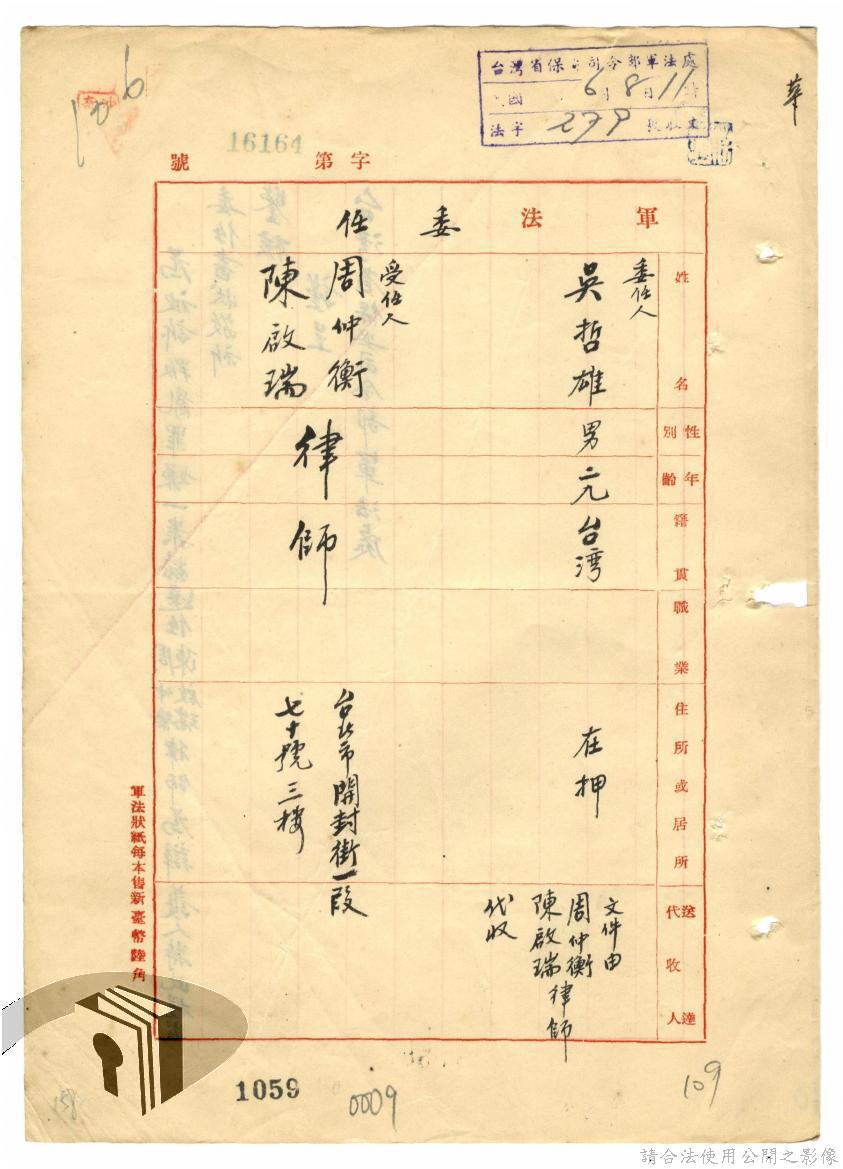 106
台灣省保安司令部軍法處
國 6月8日11時
法字 279 號收文
華
16164
字第 號
軍法委任
姓名
性別
年齡
籍貫
職業
住所或居所
送達代收人
委任人
吳哲雄 男 二九 台湾 在押
文件由
周仲衡
陳啟瑞律師
代收
受任人
周仲衡
陳啟瑞
律師
台北市開封街一段
七十號三樓
軍法狀紙每本售新臺幣陸角
1059
0009
109
請合法使用公開之影像